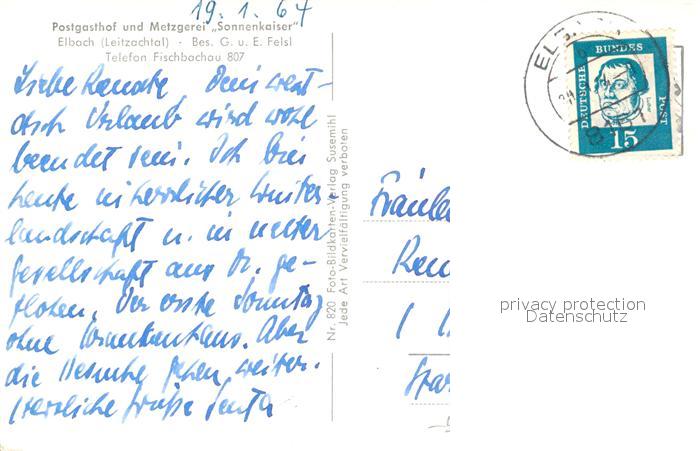 19. 1. 64
Postgasthof und Metzgerei „Sonnenkaiser"
Elbach (Leitzachtal) · Bes. G. u. E. Felsl
Telefon Fischbachau 807
Liebe Renate, Dein west-
dtsch Urlaub wird wohl
beendet sein. Ich bin
heute in herrlicher Winter-
landschaft u. in netter
Gesellschaft aus M. ge-
flohen. Der erste Sonntag
ohne Krankenhaus. Aber
die Besuche gehen weiter.
Herzliche Grüße Senta
Nr. 820 Foto-Bildkarten-Verlag Susemihl
Jede Art Vervielfältigung verboten
DEUTSCHE BUNDES POST
Luther
15
Fräule
Ren
privacy protection
Datenschutz